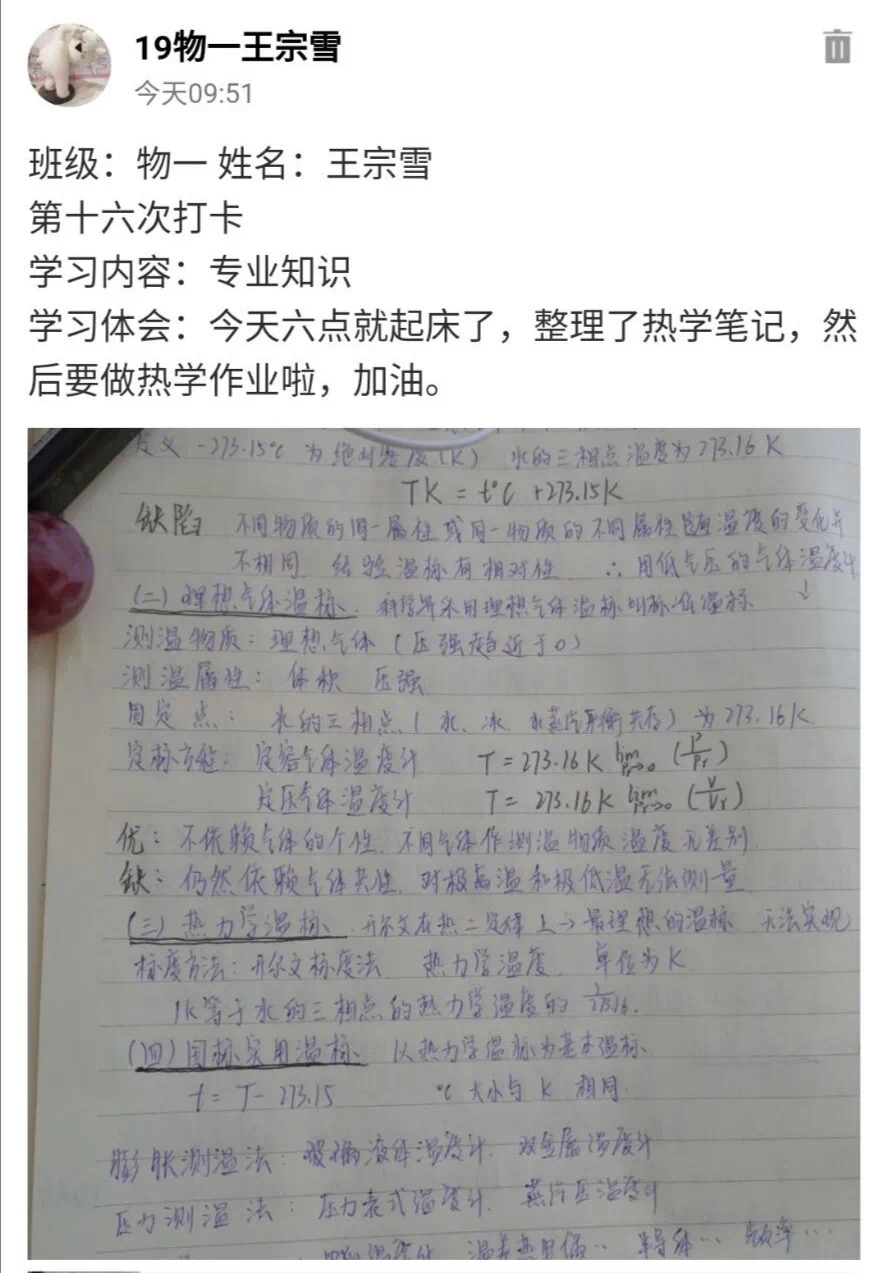 19物一王宗雪
今天09:51
班级：物一 姓名：王宗雪
第十六次打卡
学习内容：专业知识
学习体会：今天六点就起床了，整理了热学笔记，然
后要做热学作业啦，加油。
定义 -273.15℃ 为绝对零度(K) 水的三相点温度为273.16K
TK = t℃ +273.15K
缺陷 不同物质的同一属性或同一物质的不同属性随温度的变化并
不相同 经验温标有相对性 ∴用低气压的气体温度计
↓
(二)理想气体温标、科学界采用理想气体温标叫标准温标
测温物质：理想气体(压强趋近于0)
测温属性：体积 压强
固定点：水的三相点(水、冰、水蒸汽平衡共存)为273.16K
定标方程：定容气体温度计 T=273.16K lim (P/Pr)
定压气体温度计 T= 273.16K lim (V/Vr)
优：不依赖气体的个性，不同气体作测温物质温度无差别
缺：仍然依赖气体共性，对极高温和极低温无法测量
(三)热力学温标、开尔文在热二定律上→最理想的温标 无法实现
标度方法：开尔文标度法 热力学温度 单位为K
1K等于水的三相点的热力学温度的 1/273.16.
(四)国标实用温标、以热力学温标为基本温标
t = T- 273.15 ℃大小与K相同
膨胀测温法：玻璃液体温度计、双金属温度计
压力测温法：压力表式温度计、蒸汽压温度计
半导体‥ 频率…